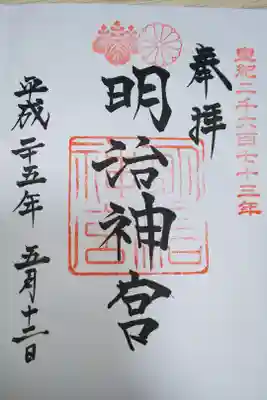 皇紀二千六百七十三年
奉拝
明治神宮
平成二十五年 五月十二日